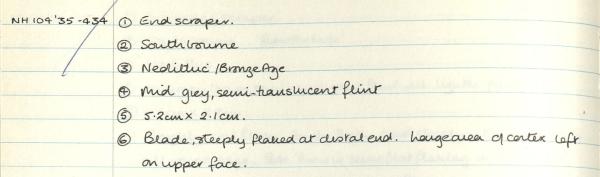 NH 104 '35 - 434 ① End scraper.
② Southbourne
③ Neolithic / Bronze Age
④ Mid grey, semi-translucent flint
⑤ 5.2cm x 2.1cm.
⑥ Blade, steeply flaked at distal end. Large area of cortex left
on upper face.